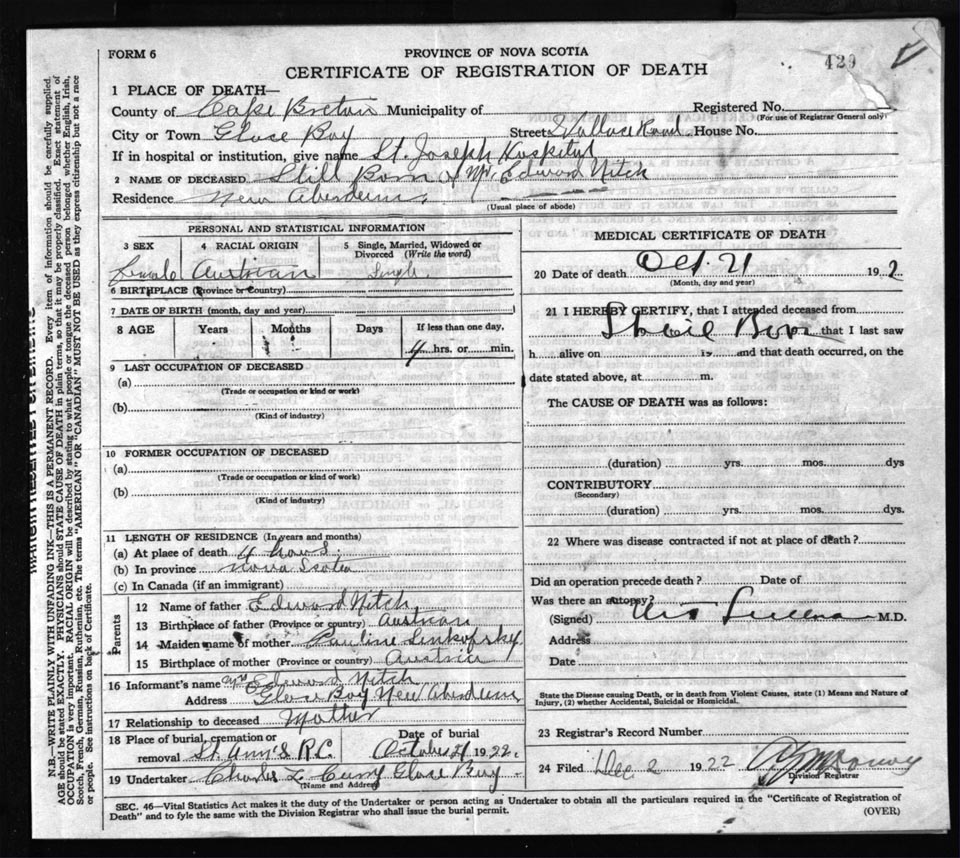 FORM 6
PROVINCE OF NOVA SCOTIA
429
CERTIFICATE OF REGISTRATION OF DEATH
1 PLACE OF DEATH—
County of Cape Breton Municipality of Registered No.
(For use of Registrar General only)
City or Town Glace Bay Street Wallace Road. House No.
If in hospital or institution, give name St. Joseph Hospital
2 NAME OF DECEASED Still Born of Mr. Edward Nitch
Residence New Aberdeen.
(Usual place of abode)
PERSONAL AND STATISTICAL INFORMATION
3 SEX 4 RACIAL ORIGIN 5 Single, Married, Widowed or Divorced (Write the word)
female Austrian Single
6 BIRTHPLACE (Province or Country)
7 DATE OF BIRTH (month, day and year)
8 AGE Years Months Days If less than one day,
4 hrs. or min.
9 LAST OCCUPATION OF DECEASED
(a)
(Trade or occupation or kind or work)
(b)
(Kind of industry)
10 FORMER OCCUPATION OF DECEASED
(a)
(Trade or occupation or kind or work)
(b)
(Kind of industry)
11 LENGTH OF RESIDENCE (In years and months)
(a) At place of death 4 hours.
(b) In province Nova Scotia
(c) In Canada (if an immigrant)
Parents
12 Name of father Edward Nitch
13 Birthplace of father (Province or country) Austrian
14 Maiden name of mother Pauline
15 Birthplace of mother (Province or country) Austria
16 Informant's name Mrs Edward Nitch
Address Glace Bay New Aberdeen
17 Relationship to deceased Mother
18 Place of burial, cremation or removal St. Ann's R.C. Date of burial October 21 1922.
19 Undertaker Charles L Curry Glace Bay
(Name and Address)
MEDICAL CERTIFICATE OF DEATH
20 Date of death Oct. 21 192 2
(Month, day and year)
21 I HEREBY CERTIFY, that I attended deceased from
Born that I last saw
h alive on is and that death occurred, on the
date stated above, at m.
The CAUSE OF DEATH was as follows:
(duration) yrs. mos. dys
CONTRIBUTORY
(Secondary)
(duration) yrs. mos. dys.
22 Where was disease contracted if not at place of death?
Did an operation precede death? Date of
Was there an autopsy?
(Signed) M.D.
Address
Date
State the Disease causing Death, or in death from Violent Causes, state (1) Means and Nature of
Injury, (2) whether Accidental, Suicidal or Homicidal.
23 Registrar's Record Number
24 Filed Dec 2 1922
Division Registrar
SEC. 46—Vital Statistics Act makes it the duty of the Undertaker or person acting as Undertaker to obtain all the particulars required in the "Certificate of Registration of
Death" and to fyle the same with the Division Registrar who shall issue the burial permit.
(OVER)
N.B.—WRITE PLAINLY WITH UNFADING INK—THIS IS A PERMANENT RECORD. Every item of information should be carefully supplied.
AGE should be stated EXACTLY. PHYSICIANS should STATE CAUSE OF DEATH in plain terms, so that it may be properly classified. Exact statement of
OCCUPATION is very important. RACIAL ORIGIN will be described by stating to what people or tongue the deceased person belonged, whether English, Irish,
Scotch, French, German, Russian, Ruthenian, etc. The terms "AMERICAN" OR "CANADIAN" MUST NOT BE USED as they express citizenship but not a race
or people. See instructions on back of Certificate.